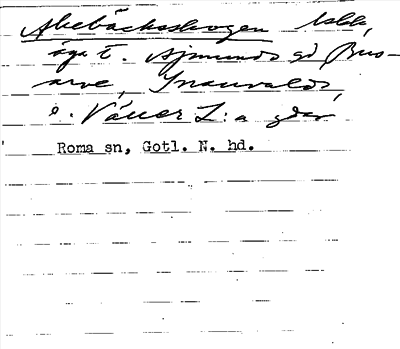 Abebäcksskogen
äga t. Ajmunds gd, Bus-
arve, Snauvalds,
o. Väller L:a gdar
Roma sn, Gotl. N. hd.